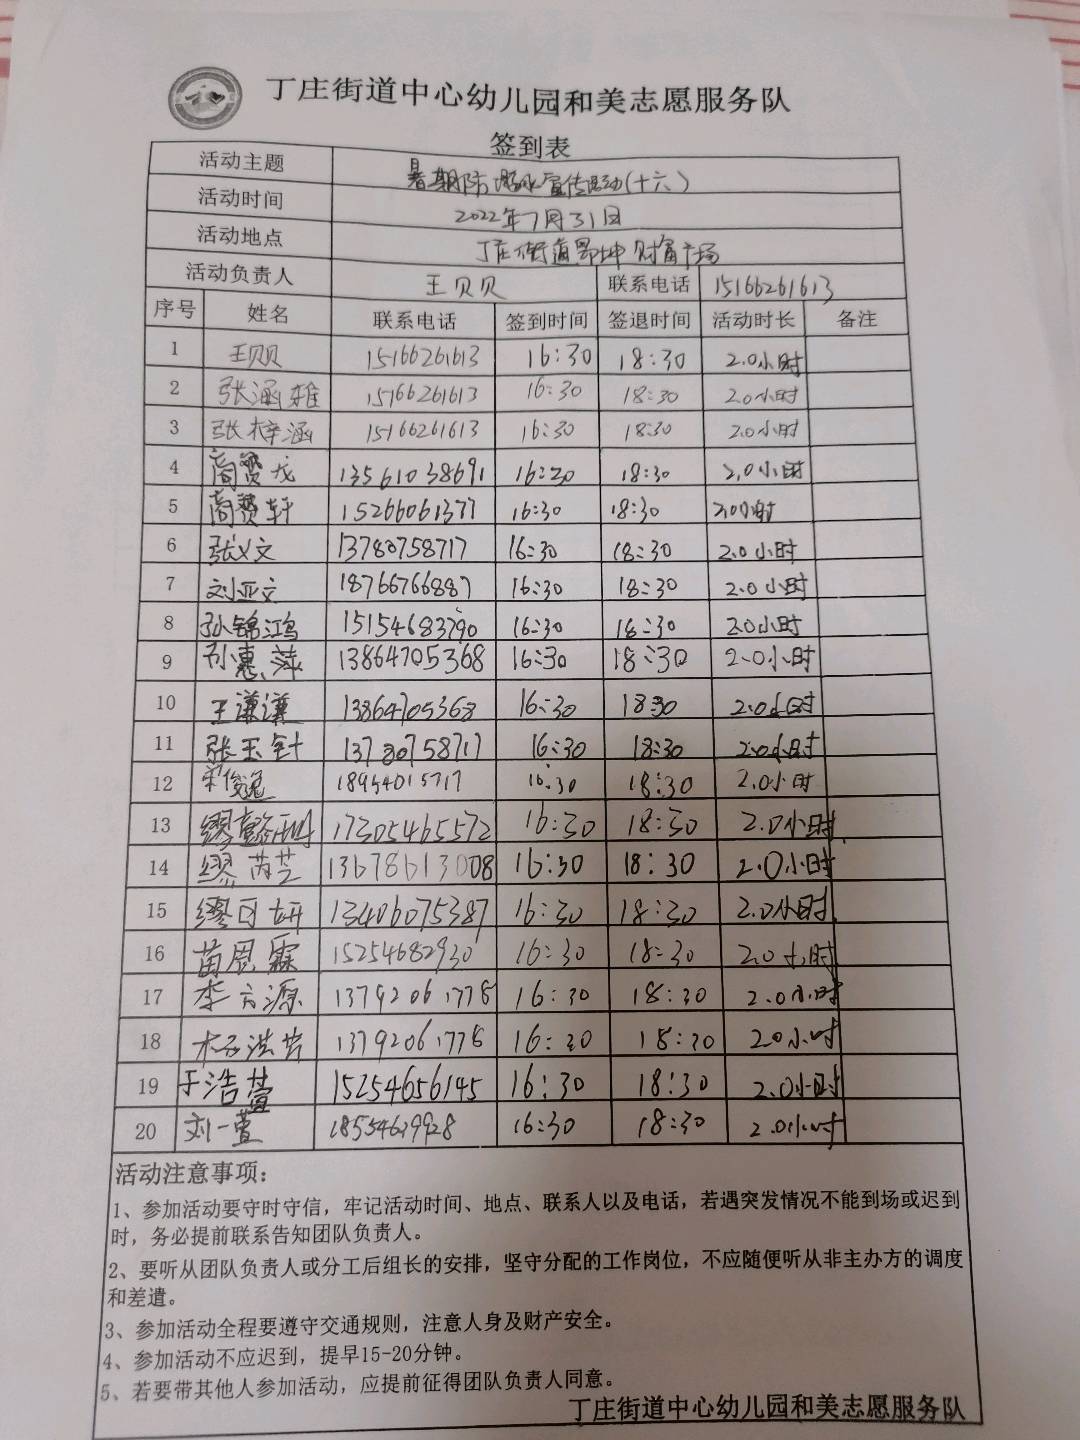 丁庄街道中心幼儿园和美志愿服务队
签到表
活动主题 暑期防溺水宣传活动(十六)
活动时间 2022年7月31日
活动地点 丁庄街道昂坤财富广场
活动负责人 王贝贝 联系电话 15166261613
序号 姓名 联系电话 签到时间 签退时间 活动时长 备注
1 王贝贝 15166261613 16:30 18:30 2.0小时
2 张涵雅 15166261613 16:30 18:30 2.0小时
3 张梓涵 15166261613 16:30 18:30 2.0小时
4 商贤龙 13561038691 16:30 18:30 2.0小时
5 商贤轩 15266061377 16:30 18:30 2.0小时
6 张义文 13780758717 16:30 18:30 2.0小时
7 刘亚文 18766766887 16:30 18:30 2.0小时
8 孙锦鸿 15154683790 16:30 18:30 2.0小时
9 孙惠萍 13864705368 16:30 18:30 2.0小时
10 王谦谦 13864705368 16:30 18:30 2.0小时
11 张玉针 13780758717 16:30 18:30 2.0小时
12 俊逸 18954015717 16:30 18:30 2.0小时
13 缪 17305465572 16:30 18:30 2.0小时
14 缪芮芝 13678613008 16:30 18:30 2.0小时
15 缪可妍 13406075387 16:30 18:30 2.0小时
16 苗恩霖 15254682930 16:30 18:30 2.0小时
17 李方源 13792061778 16:30 18:30 2.0小时
18 13792061778 16:30 18:30 2.0小时
19 于浩萱 15254656145 16:30 18:30 2.0小时
20 刘一萱 18554619928 16:30 18:30 2.0小时
活动注意事项：
1、参加活动要守时守信，牢记活动时间、地点、联系人以及电话，若遇突发情况不能到场或迟到
时，务必提前联系告知团队负责人。
2、要听从团队负责人或分工后组长的安排，坚守分配的工作岗位，不应随便听从非主办方的调度
和差遣。
3、参加活动全程要遵守交通规则，注意人身及财产安全。
4、参加活动不应迟到，提早15-20分钟。
5、若要带其他人参加活动，应提前征得团队负责人同意。
丁庄街道中心幼儿园和美志愿服务队